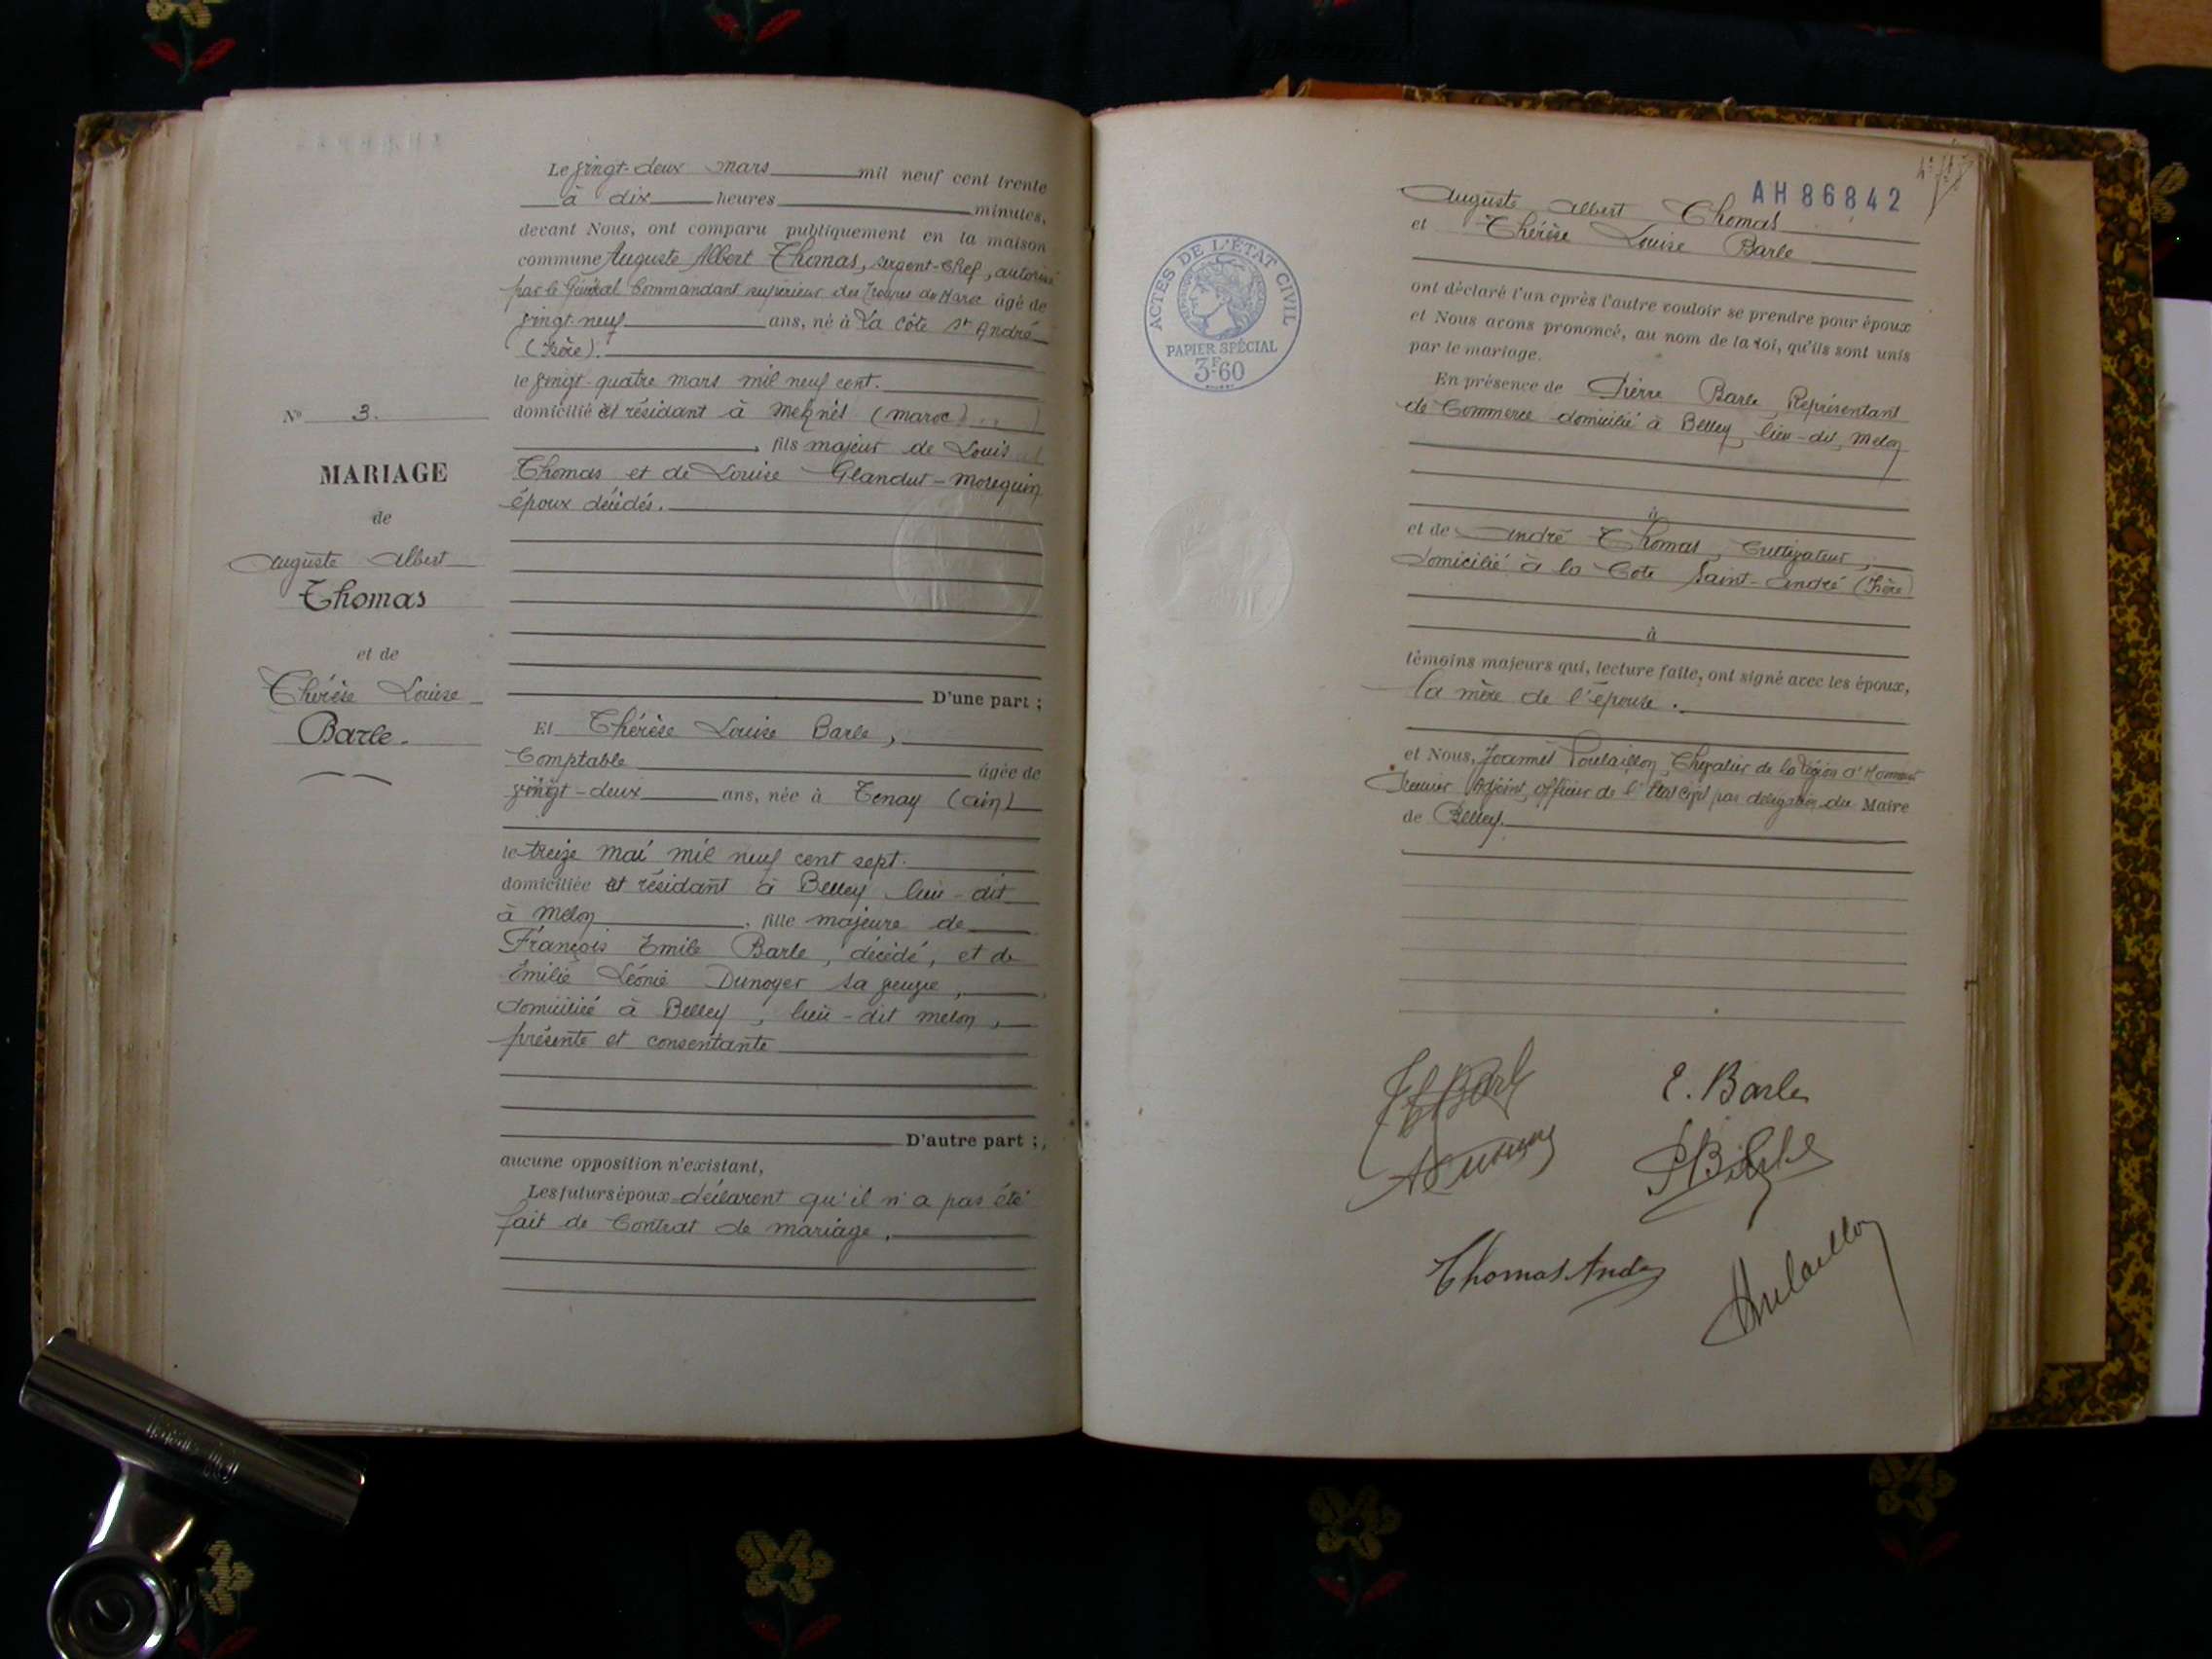 Le vingt-deux mars mil neuf cent trente
à dix heures minutes,
devant Nous, ont comparu publiquement en la maison
commune Auguste Albert Thomas, sergent-Chef, autorisé
par le Général Commandant supérieur des Troupes du Maroc âgé de
vingt-neuf ans, né à La Côte St André
(Isère).
le vingt-quatre mars mil neuf cent.
domicilié et résidant à Meknès (Maroc)
, fils majeur de Louis
Thomas et de Louise Glandut-Morequin
époux décédés.
D'une part ;
Et Thérèse Louise Barle,
Comptable âgée de
vingt-deux ans, née à Tenay (Ain)
le treize mai mil neuf cent sept.
domiciliée et résidant à Belley lieu-dit
à Melon, fille majeure de
François Emile Barle, décédé, et de
Emilie Léonie Dunoyer sa veuve,
domiciliée à Belley, lieu-dit Melon,
présente et consentante
D'autre part ;
aucune opposition n'existant,
Les futurs époux déclarent qu'il n'a pas été
fait de Contrat de mariage.
No 3.
MARIAGE
de
Auguste Albert
Thomas
et de
Thérèse Louise
Barle.
AH 86842
ACTES DE L'ÉTAT CIVIL
PAPIER SPÉCIAL
3F60
Auguste Albert Thomas
et Thérèse Louise Barle
ont déclaré l'un après l'autre vouloir se prendre pour époux
et Nous avons prononcé, au nom de la loi, qu'ils sont unis
par le mariage.
En présence de Pierre Barle, Représentant
de Commerce domicilié à Belley, lieu-dit, Melon
à
et de André Thomas, Cultivateur,
domicilié à la Côte Saint-André (Isère)
à
témoins majeurs qui, lecture faite, ont signé avec les époux,
la mère de l'épouse.
et Nous, Joannès Poulaillon, Chevalier de la Légion d'Honneur
Premier Adjoint, officier de l'Etat Civil par délégation du Maire
de Belley.
E. Barle
Thomas André
Poulaillon